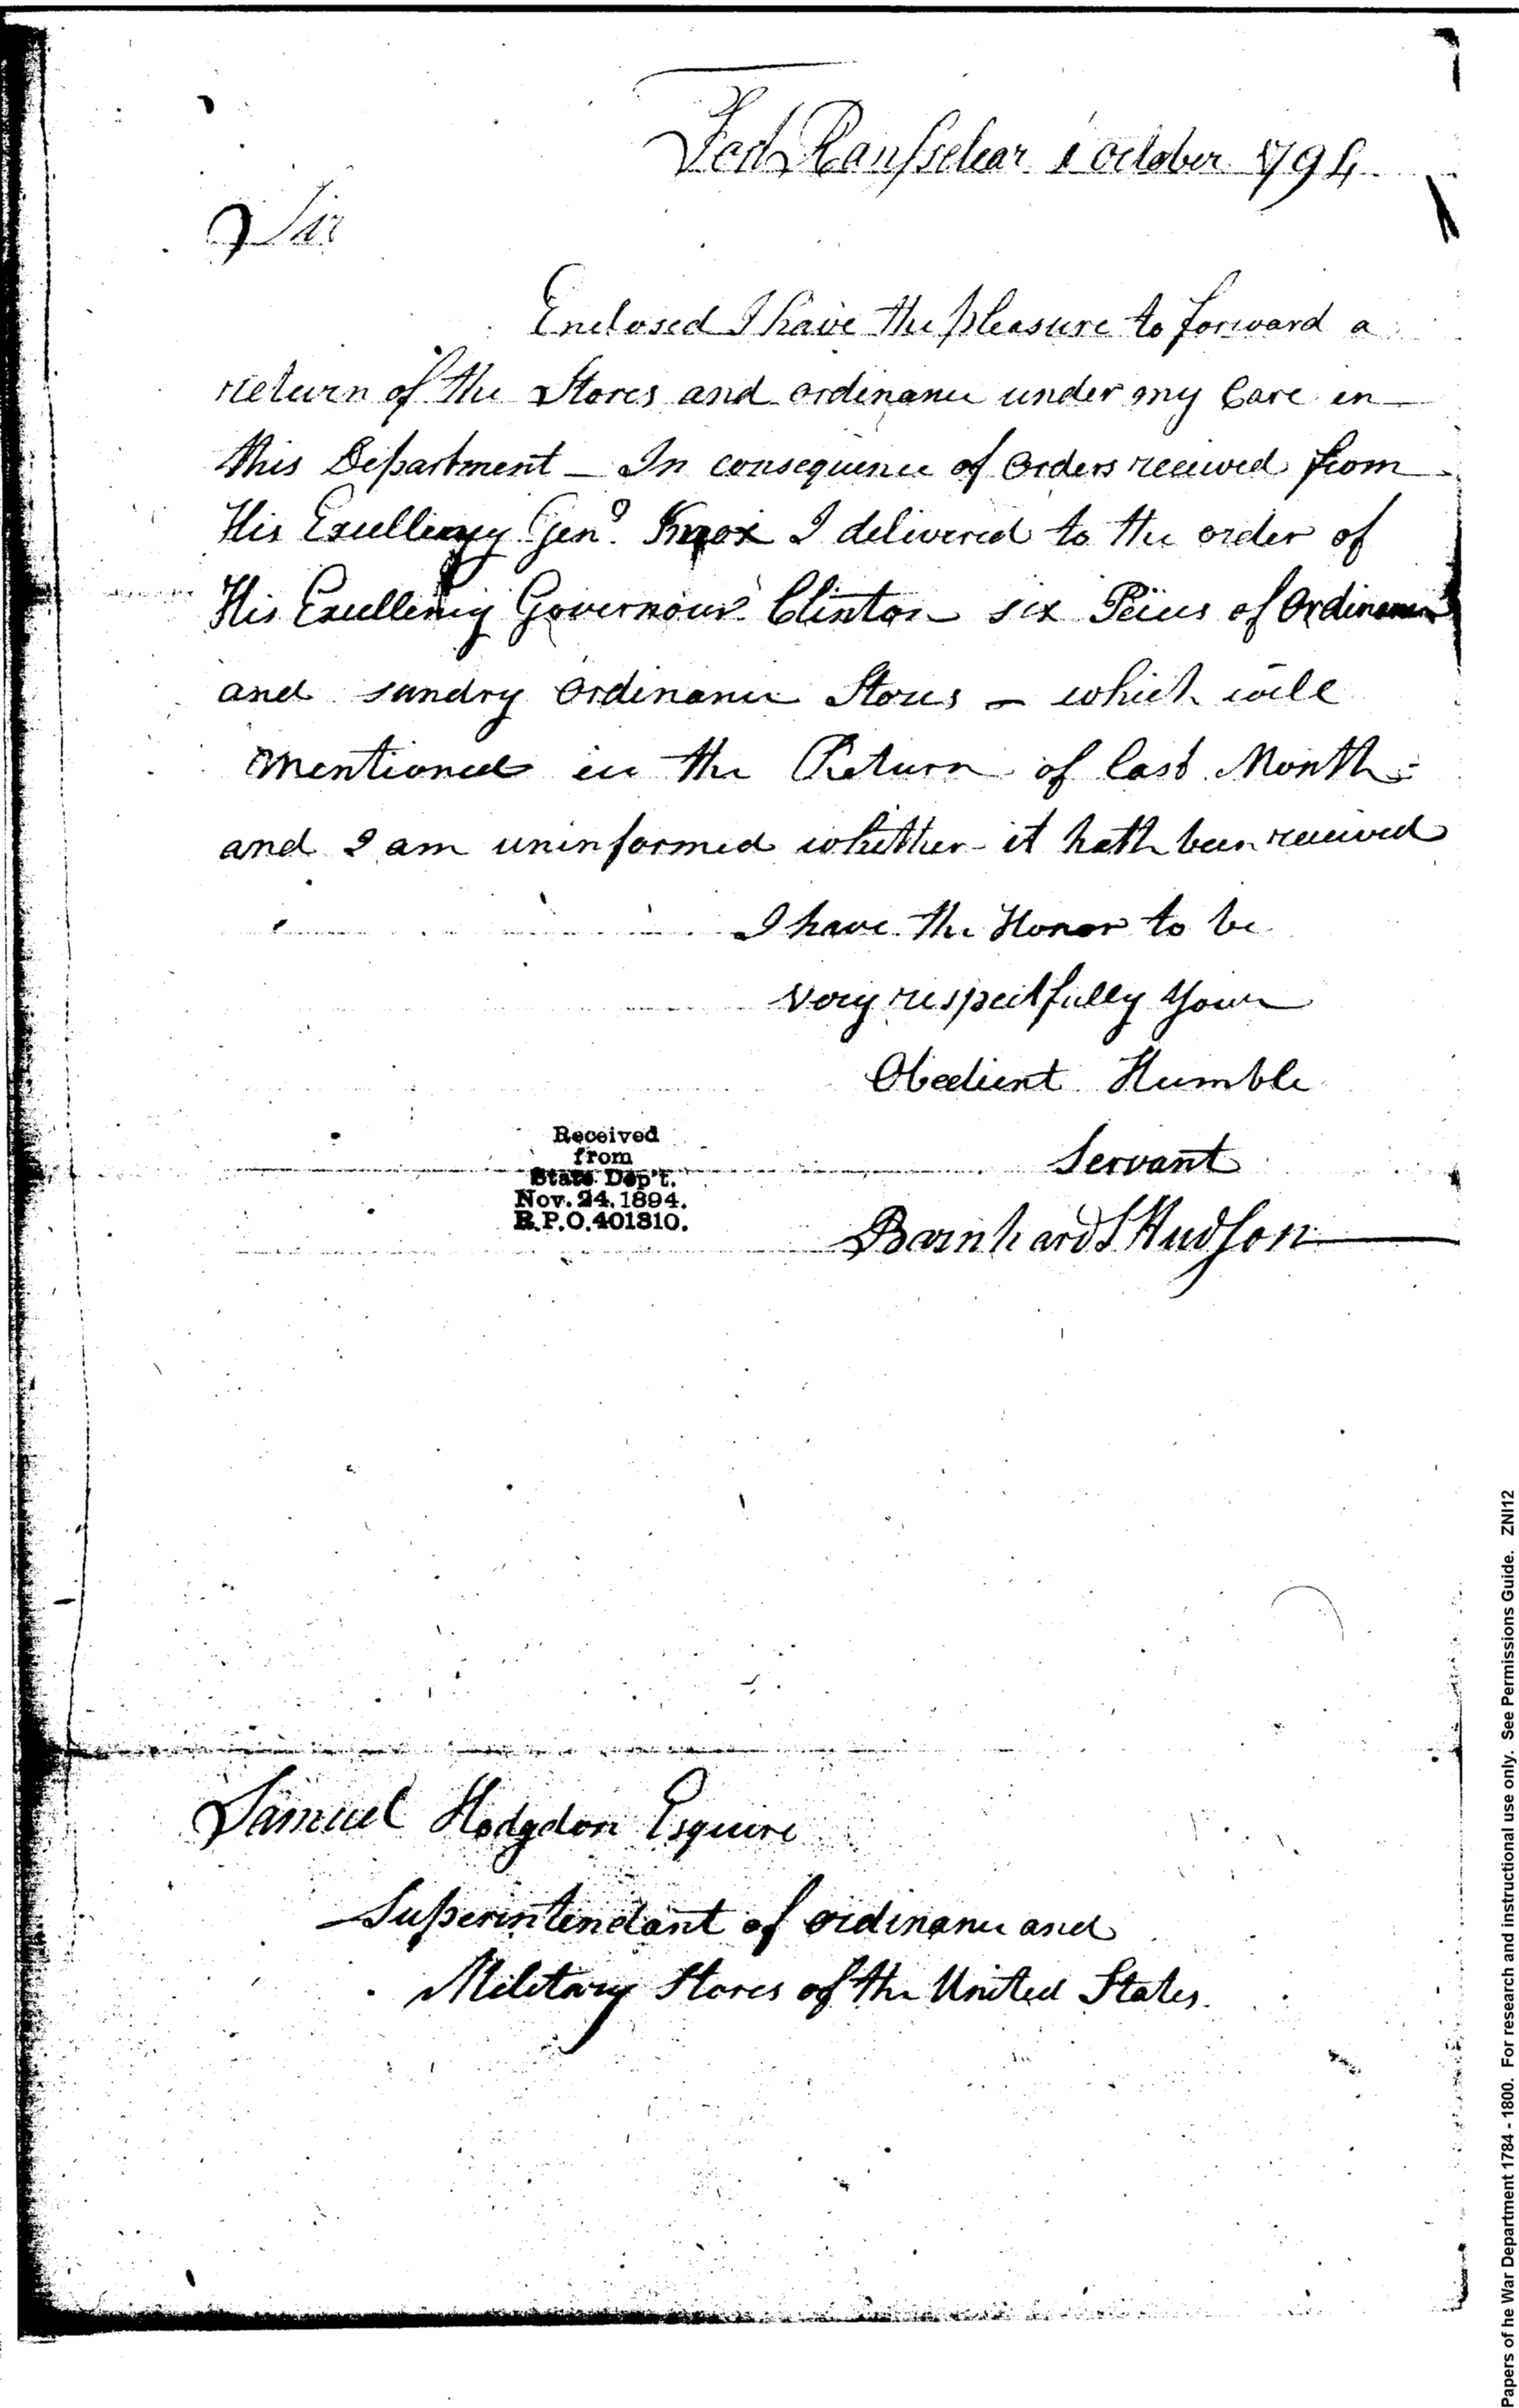 Fort Ranſselear 1 October 1794
Sir
Enclosed I have the pleasure to forward a
return of the Stores and ordinance under my Care in
this Department — In consequence of Orders received from
His Excellency Gen.l Knox I delivered to the order of
His Excellency Governour Clinton six Peices of Ordinance
and sundry Ordinance Stores — which will
mentioned in the Return of last Month
and I am uninformed whither it hath been received
I have the Honor to be
very respectfully Your
Obedient Humble
Servant
Received
from
State Dep't.
Nov. 24. 1894.
R.P.O. 401810.
Barnhard S Hudſon
Samuel Hodgdon Esquire
Superintendant of ordinance and
Military Stores of the United States.
Papers of he War Department 1784 - 1800. For research and instructional use only. See Permissions Guide. ZNI12